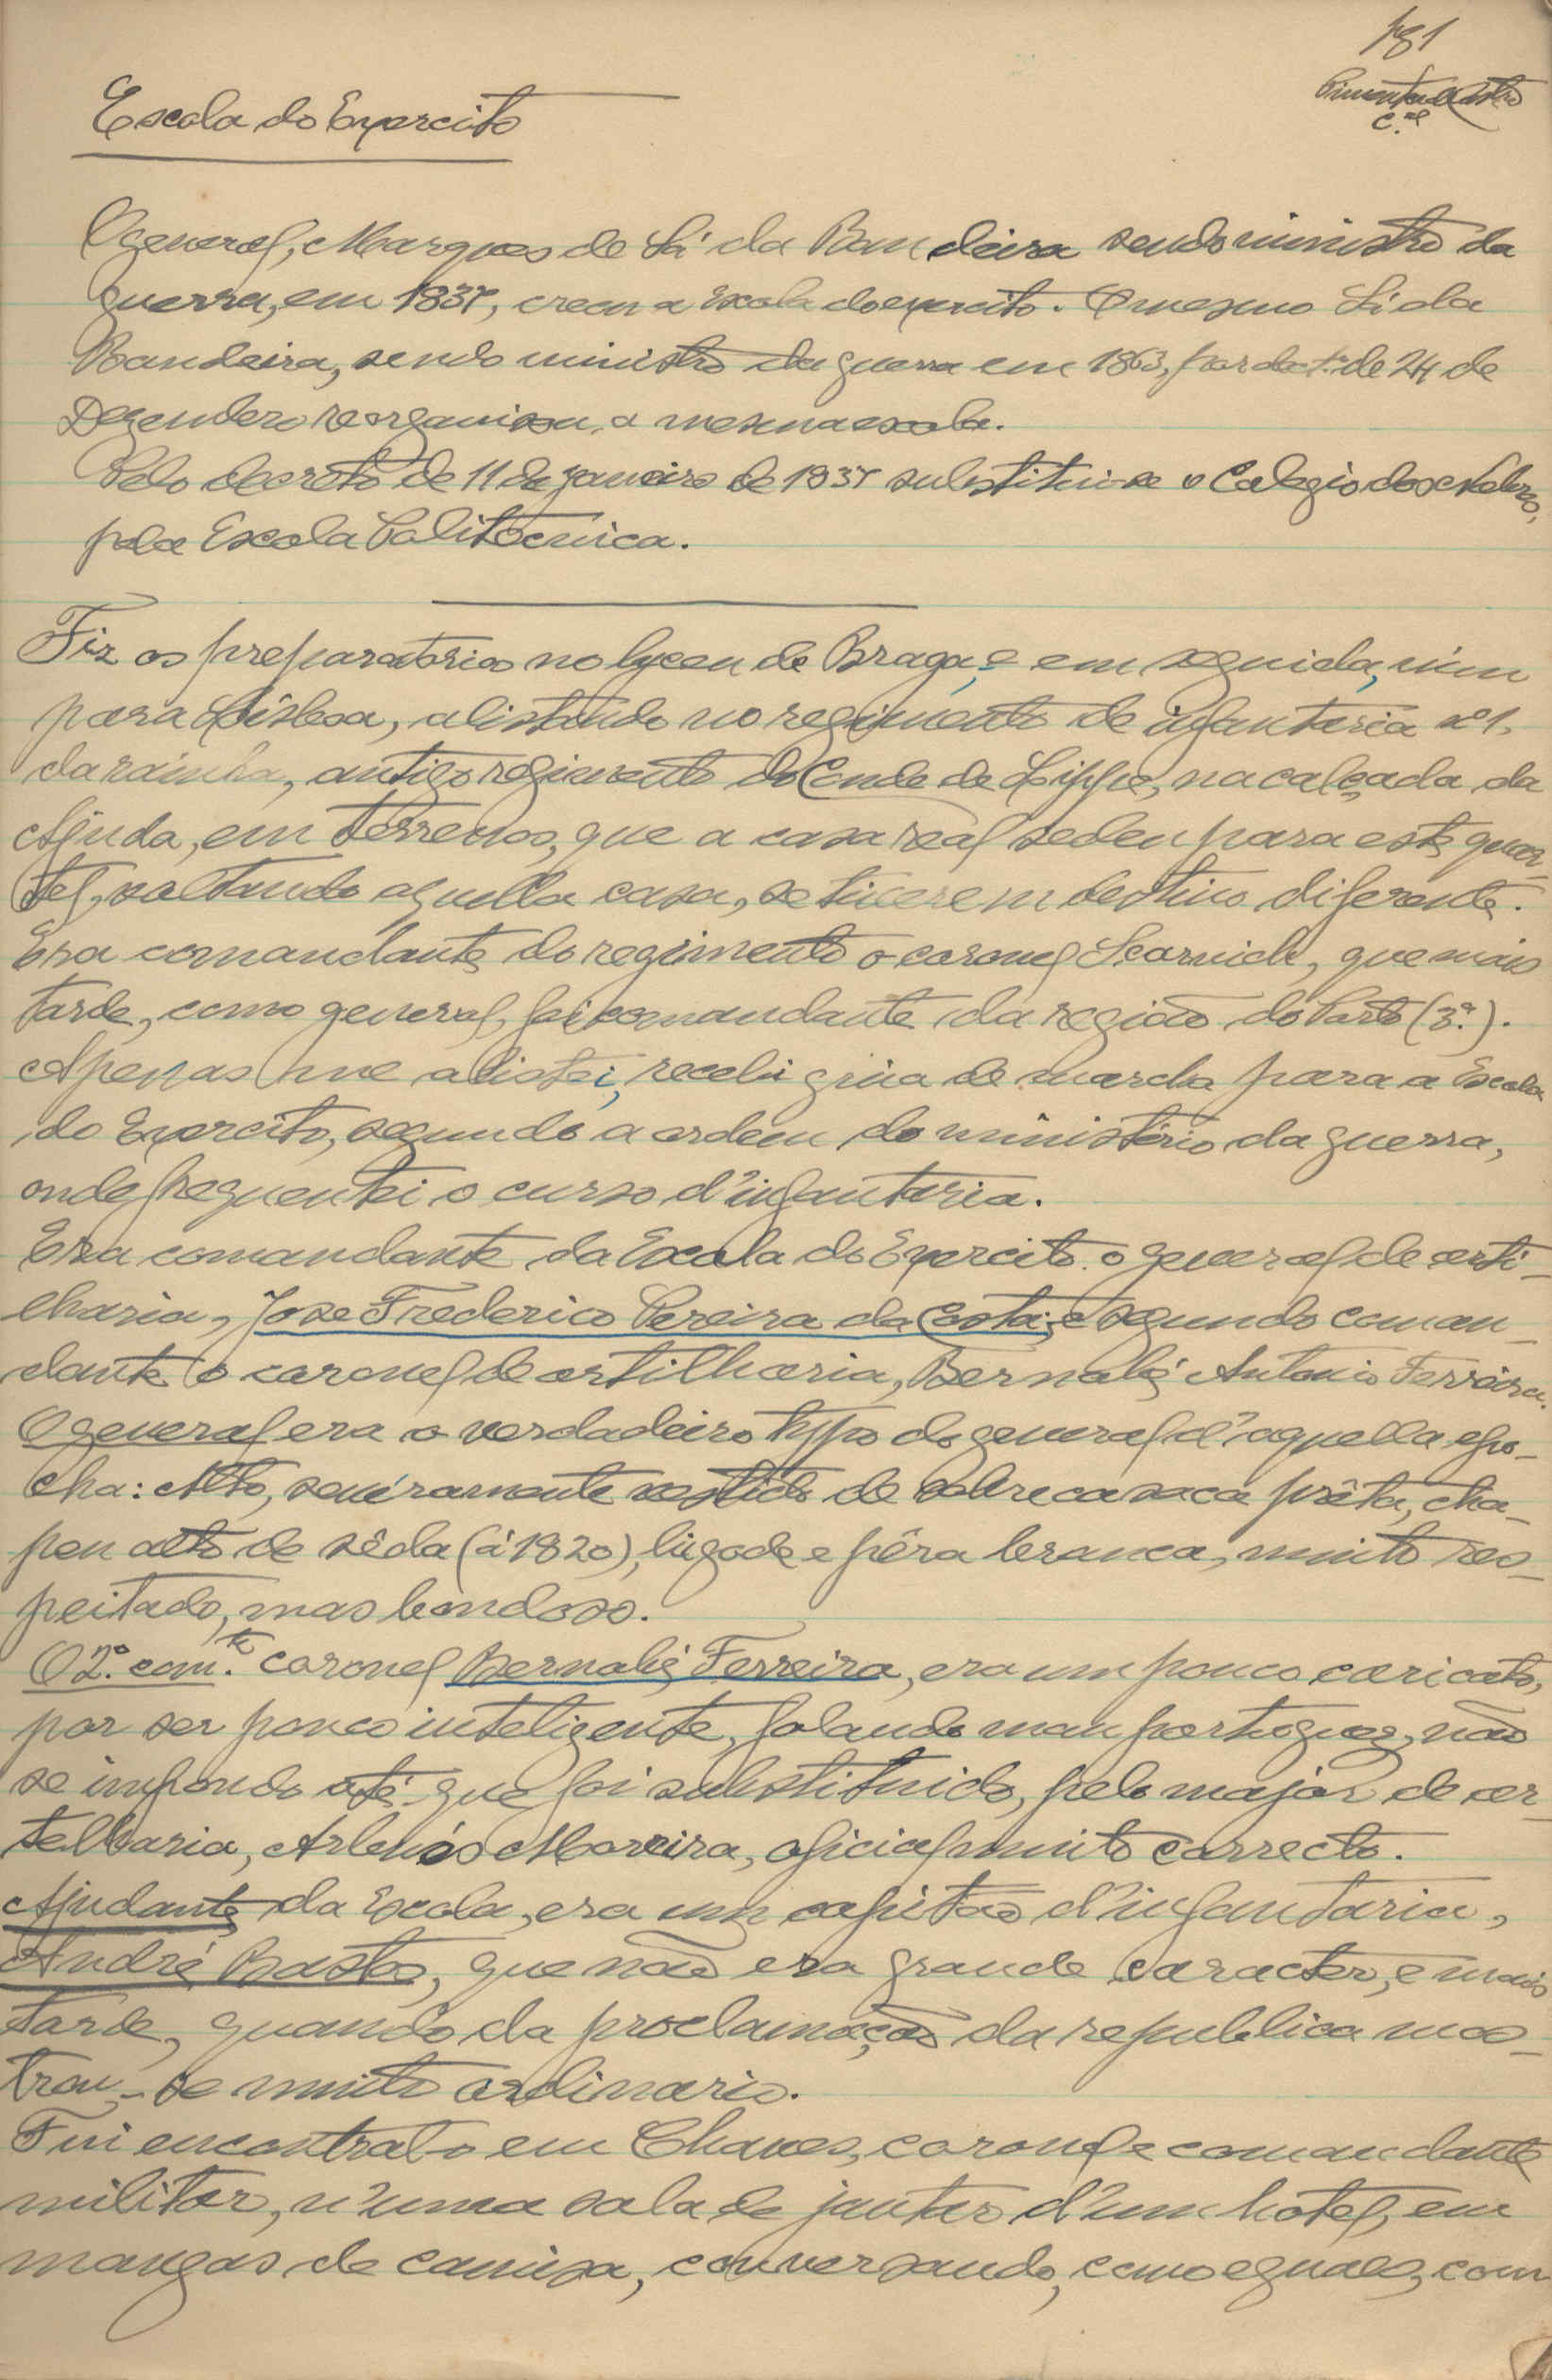 pg 1
Pimenta de Castro
C.el
Escola do Exercito
O general, Marques de Sá da Bandeira sendo ministro da
guerra, em 1837, creou a Escola do exercito. O mesmo Sá da
Bandeira, sendo ministro da guerra em 1863, por dec.to de 24 de
Dezembro reorganisou, a mesma escola.
Pelo decreto de 11 de janeiro de 1837 substituiu-se o Colegio dos Nobres,
pela Escola Politecnica.
Fiz os preparatorios no lyceu de Braga, e em seguida, vim
para Lisboa, alistando no regimento de infanteria nº 1,
da rainha, antigo regimento do Conde de Lippe, na calçada da
Ajuda, em terrenos, que a casa real sedeu para este quar-
tel, voltando aquella casa, se tiverem destino diferente.
Era comandante do regimento o coronel Scarnichi, que mais
tarde, como general, foi comandante da região do Porto (3ª.).
Apenas me alistei, recebi guia de marcha para a Escola
do Exercito, segundo a ordem do ministério da guerra,
onde frequentei o curso d'infantaria.
Era comandante da Escola do Exercito o general de arti-
lharia, Jose Frederico Pereira da Costa, e segundo coman-
dante o coronel de artilharia, Bernabé Antonio Ferreira.
O general era o verdadeiro typo do general d'aquella epo-
cha: Alto, sevéramente vestido de sobrecasaca prêta, cha-
peu alto de sêda (á 1820), bigode e pêra branca, muito res-
peitado, mas bondoso.
O 2º. com.te coronel Bernabé Ferreira, era um pouco caricato,
por ser pouco inteligente, falando mau portuguez, não
se impondo até que foi substituido, pelo major de ar-
telharia, Arbués Moreira, oficial muito correcto.
Ajudante da Escola, era um capitão d'infantaria,
André Bastos, que não era grande caracter, e mais
tarde, quando da proclamação da republica mos-
trou-se muito ordinario.
Fui encontral-o em Chaves, coronel e comandante
militar, n'uma sala de jantar d'um hotel, em
mangas de camisa, conversando, como eguaes, com